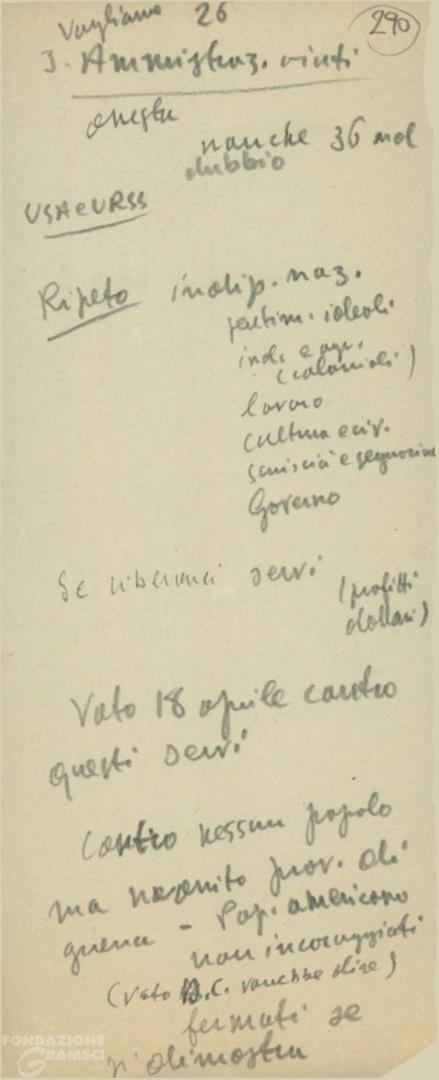 Vogliamo 26
290
3. Ammistraz. aiuti
onesta
nonche 36 mol
dubbio
USA e URSS
Ripeto indip. naz.
sentim. ideali
ind. e agr.
(coloniali)
lavoro
cultura e civ.
sciuscià e segnorine
Governo
Se liberarci servi
(profitti
dollari)
Voto 18 aprile contro
questi servi
Contro nessun popolo
ma prov. di
guerra - Pop. americano
non incoraggiati
(voto D.C. vorrebbe dire)
fermati se
si dimostra
FONDAZIONE
GRAMSCI